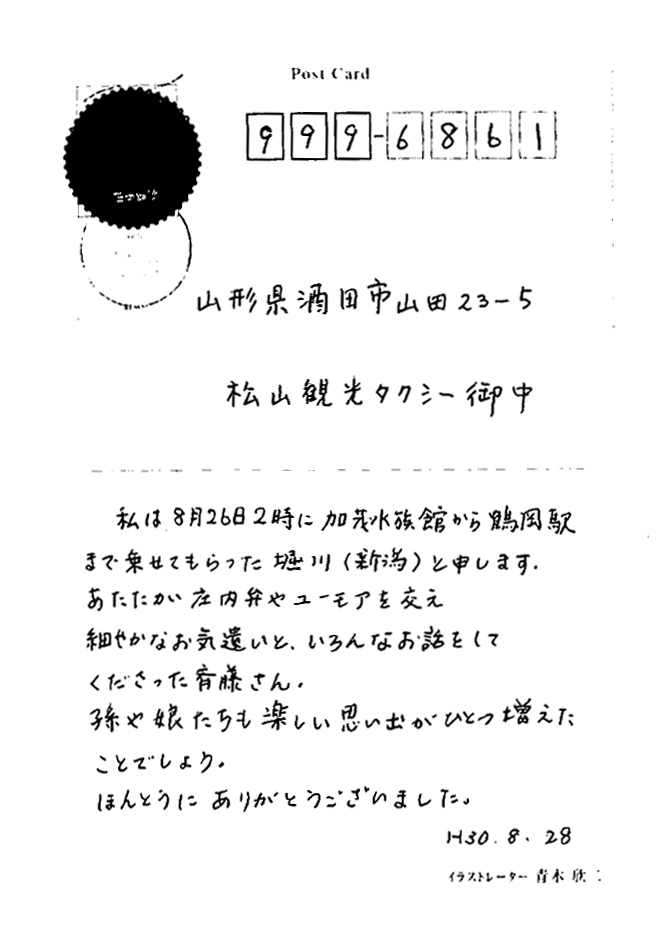 Post Card
999-6861
山形県酒田市山田23-5
松山観光タクシー御中
私は8月26日2時に加茂水族館から鶴岡駅
まで乗せてもらった堀川(新潟)と申します.
あたたかい庄内弁やユーモアを交え
細やかなお気遣いと、いろんなお話をして
くださった斉藤さん.
孫や娘たちも楽しい思い出がひとつ増えた
ことでしょう。
ほんとうにありがとうございました。
H30.8.28
イラストレーター 青木 欣二